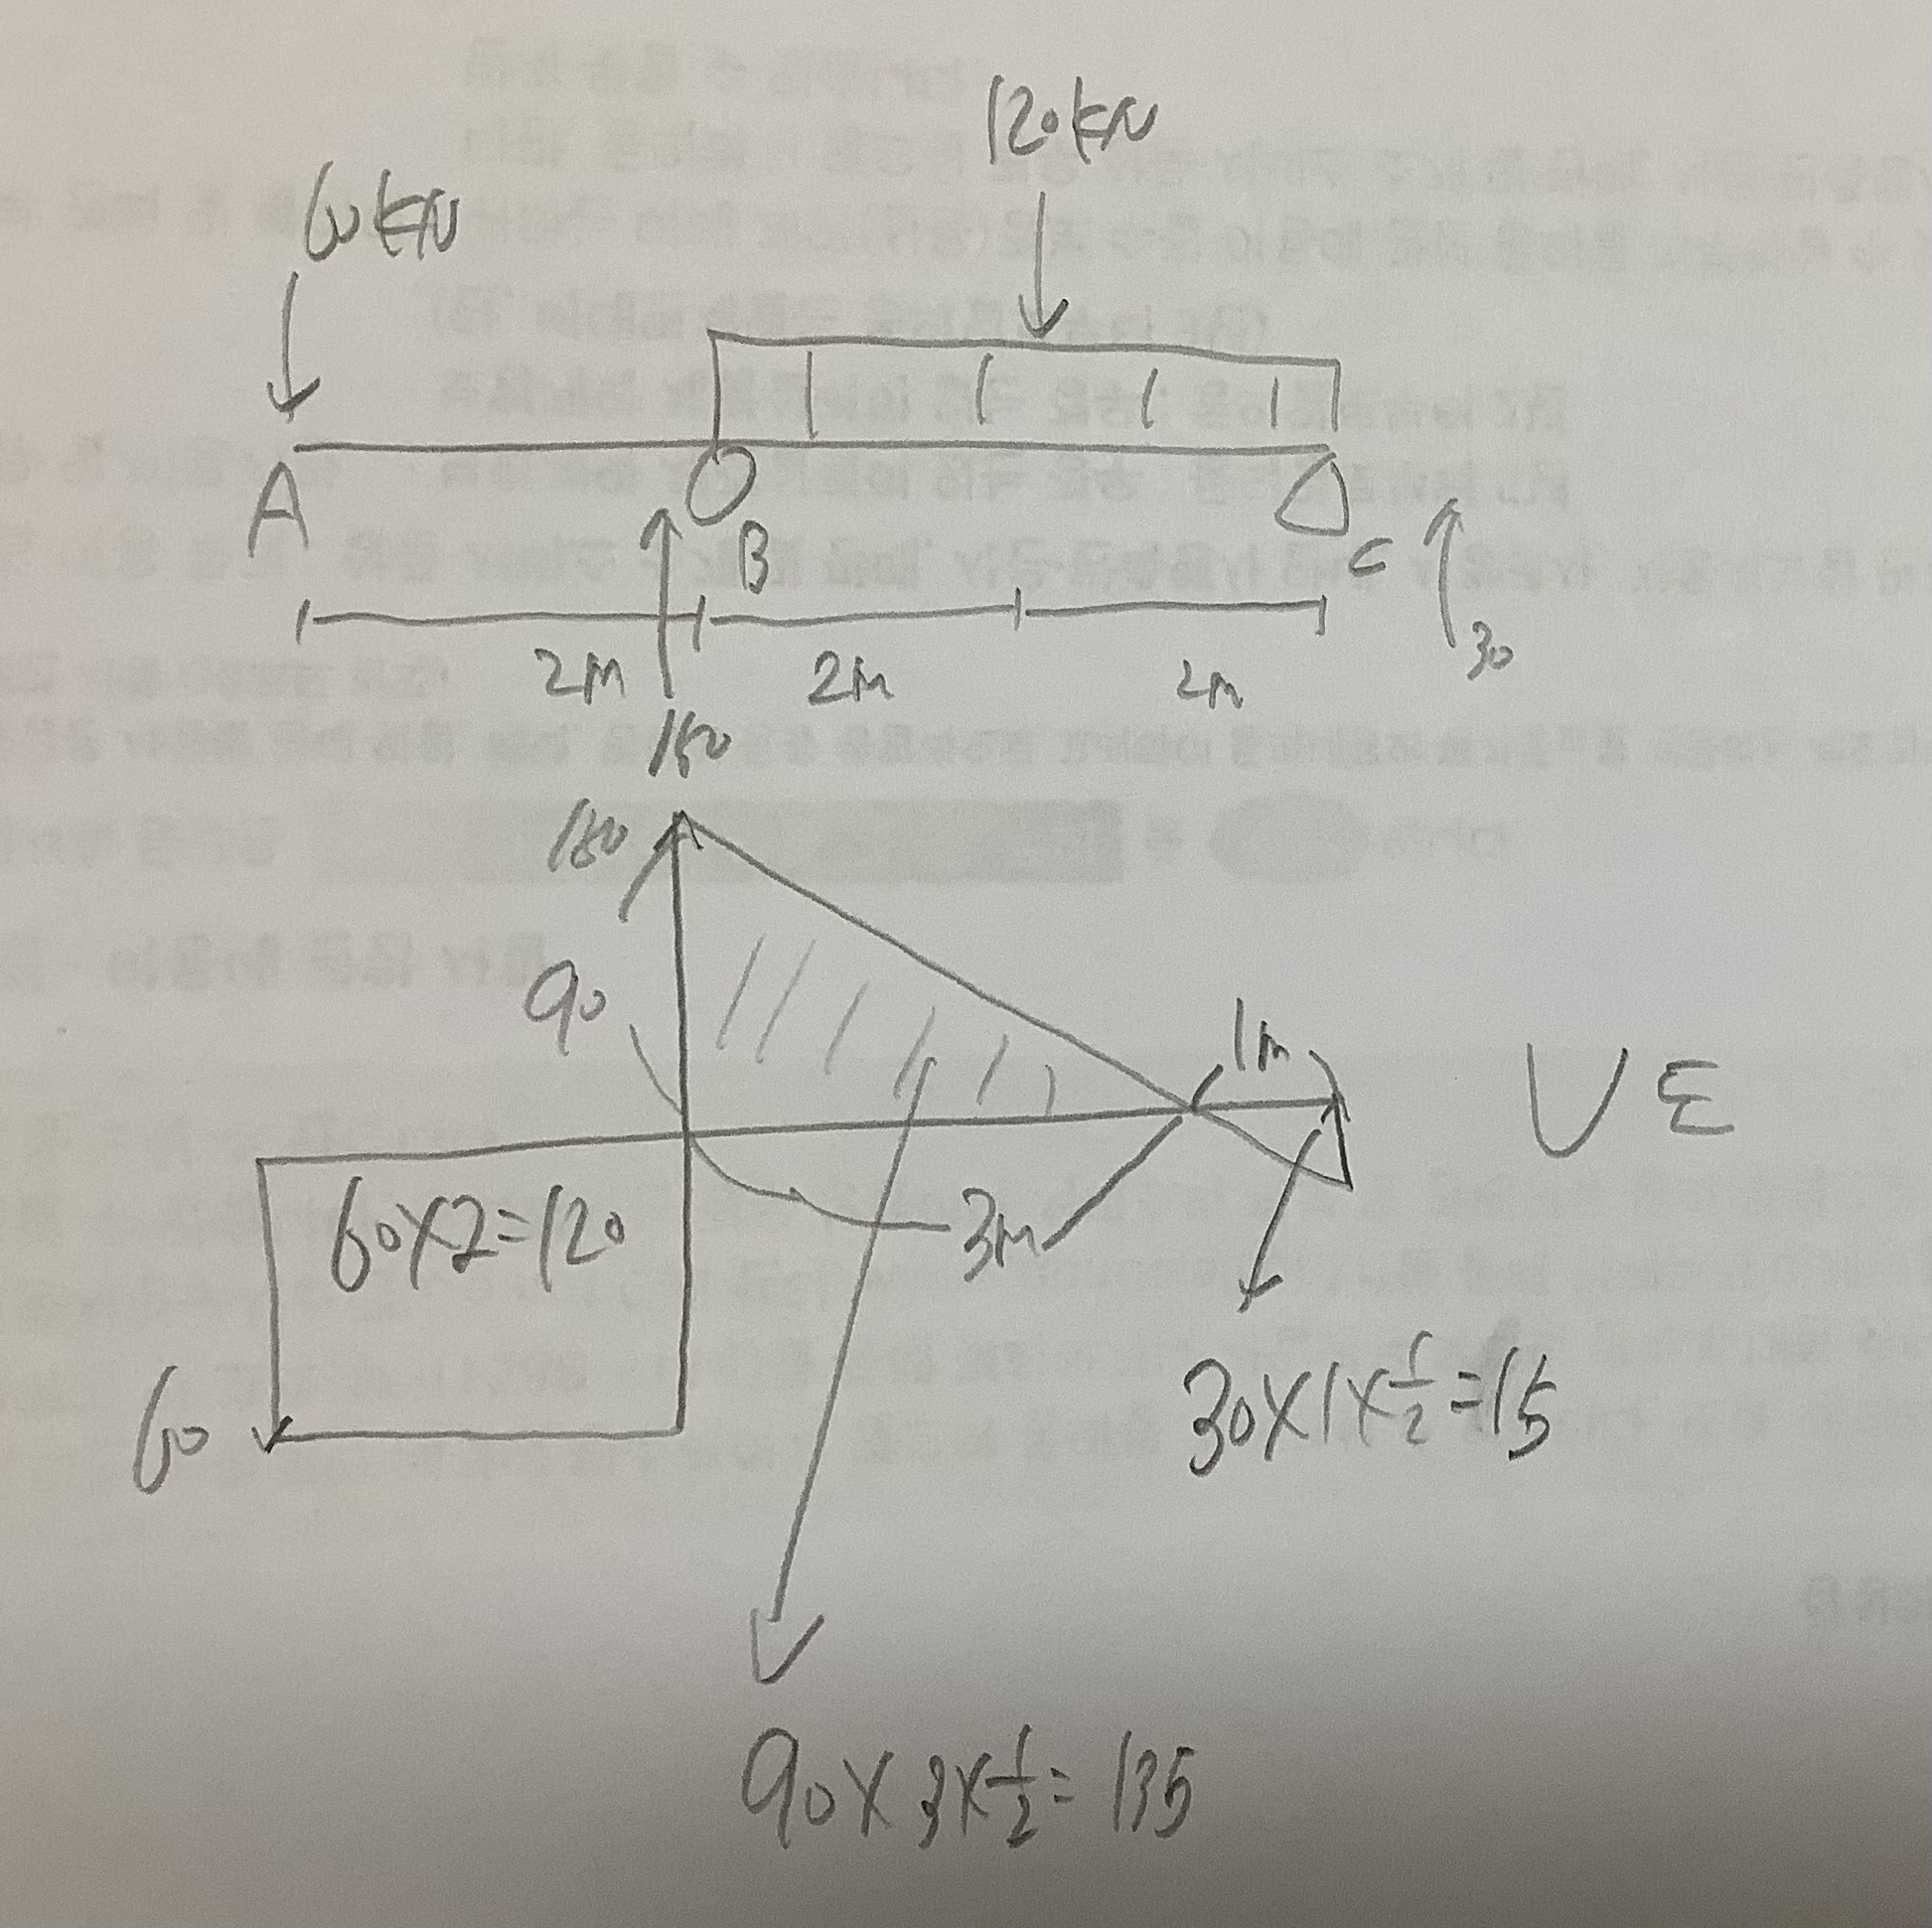 120kN
60kN
A
B
C
30
2m
2m
2m
150
150
90
1m
60×2=120
3m
60
30×1×1/2=15
90×3×1/2=135